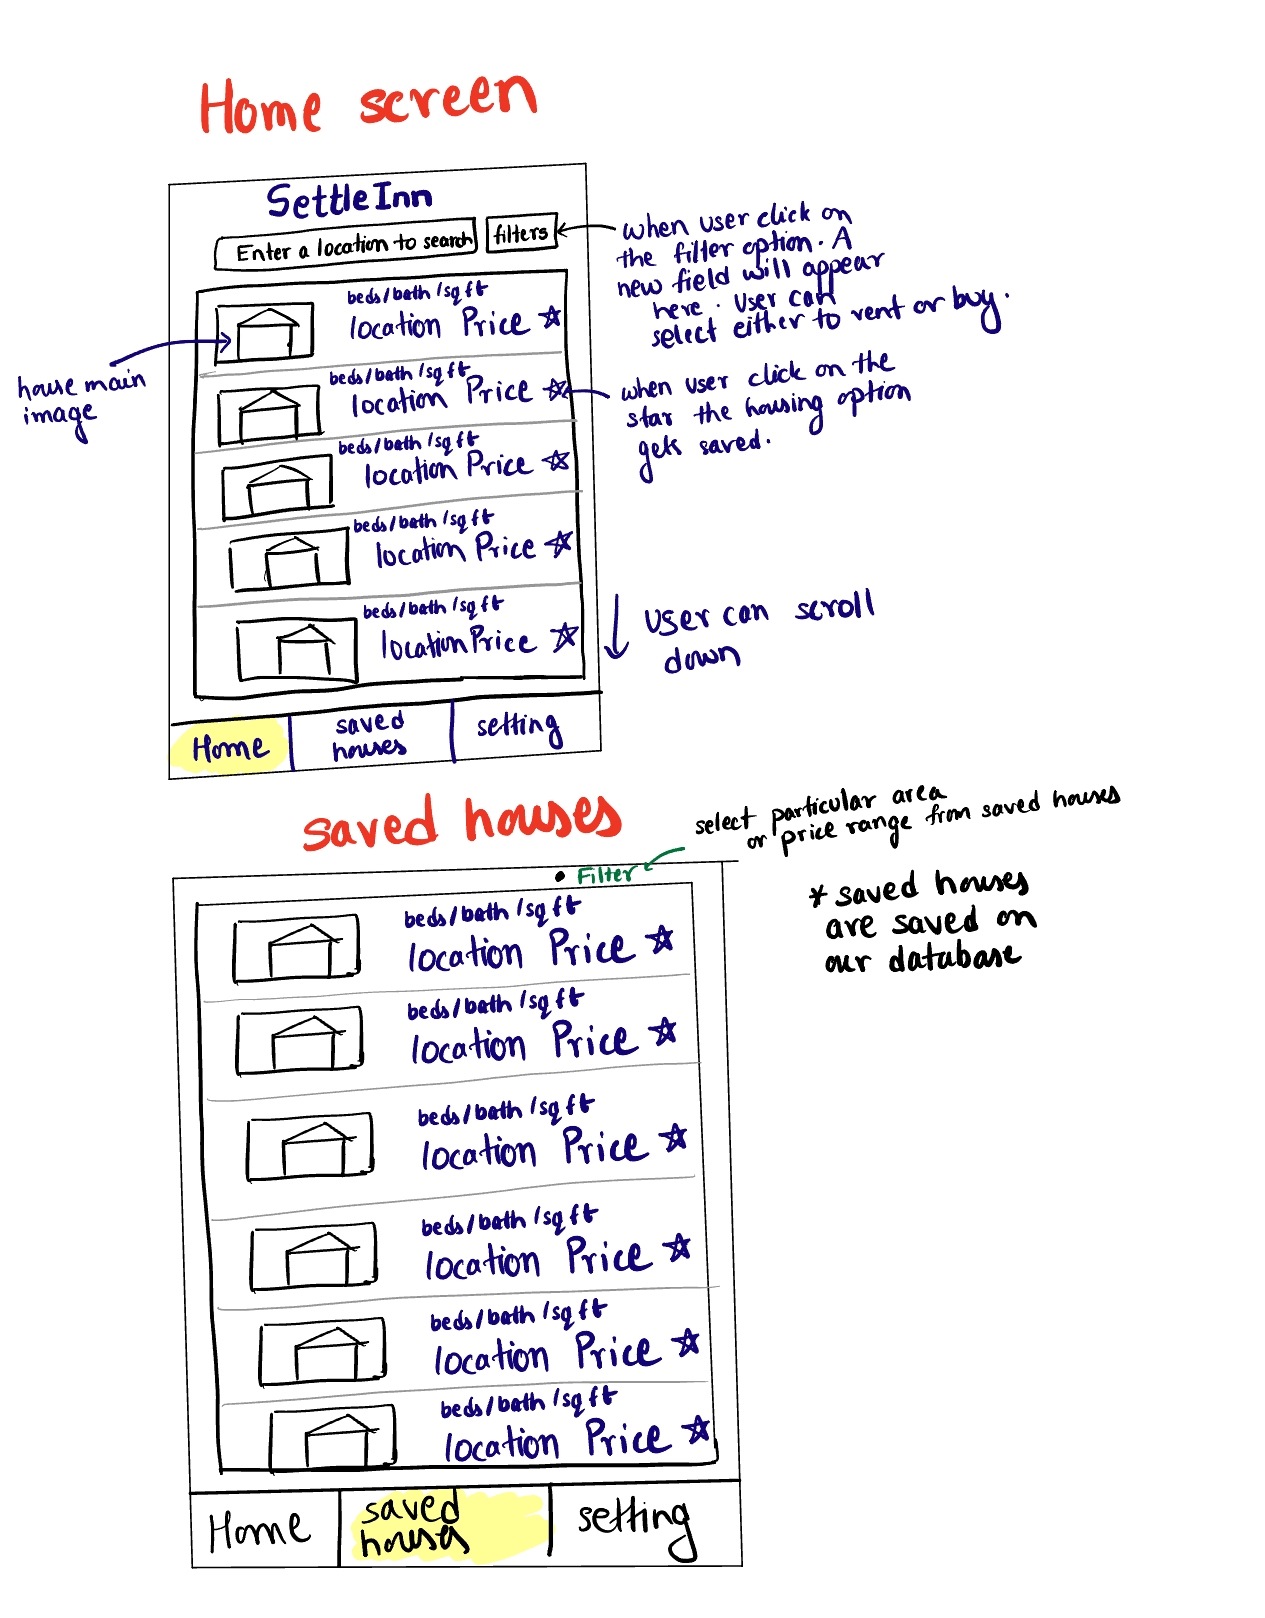 Home screen
SettleInn
Enter a location to search
filters
when user click on
the filter option. A
new field will appear
here. user can
select either to rent or buy.
beds/bath/sqft
location Price
house main
image
beds/bath/sqft
location Price
when user click on the
star the housing option
gets saved.
beds/bath/sqft
location Price
beds/bath/sqft
location Price
beds/bath/sqft
location Price
user can scroll
down
Home
saved
houses
setting
saved houses
select particular area
or price range from saved houses
• Filter
* saved houses
are saved on
our database
beds/bath/sqft
location Price
beds/bath/sqft
location Price
beds/bath/sqft
location Price
beds/bath/sqft
location Price
beds/bath/sqft
location Price
beds/bath/sqft
location Price
Home
saved
houses
setting